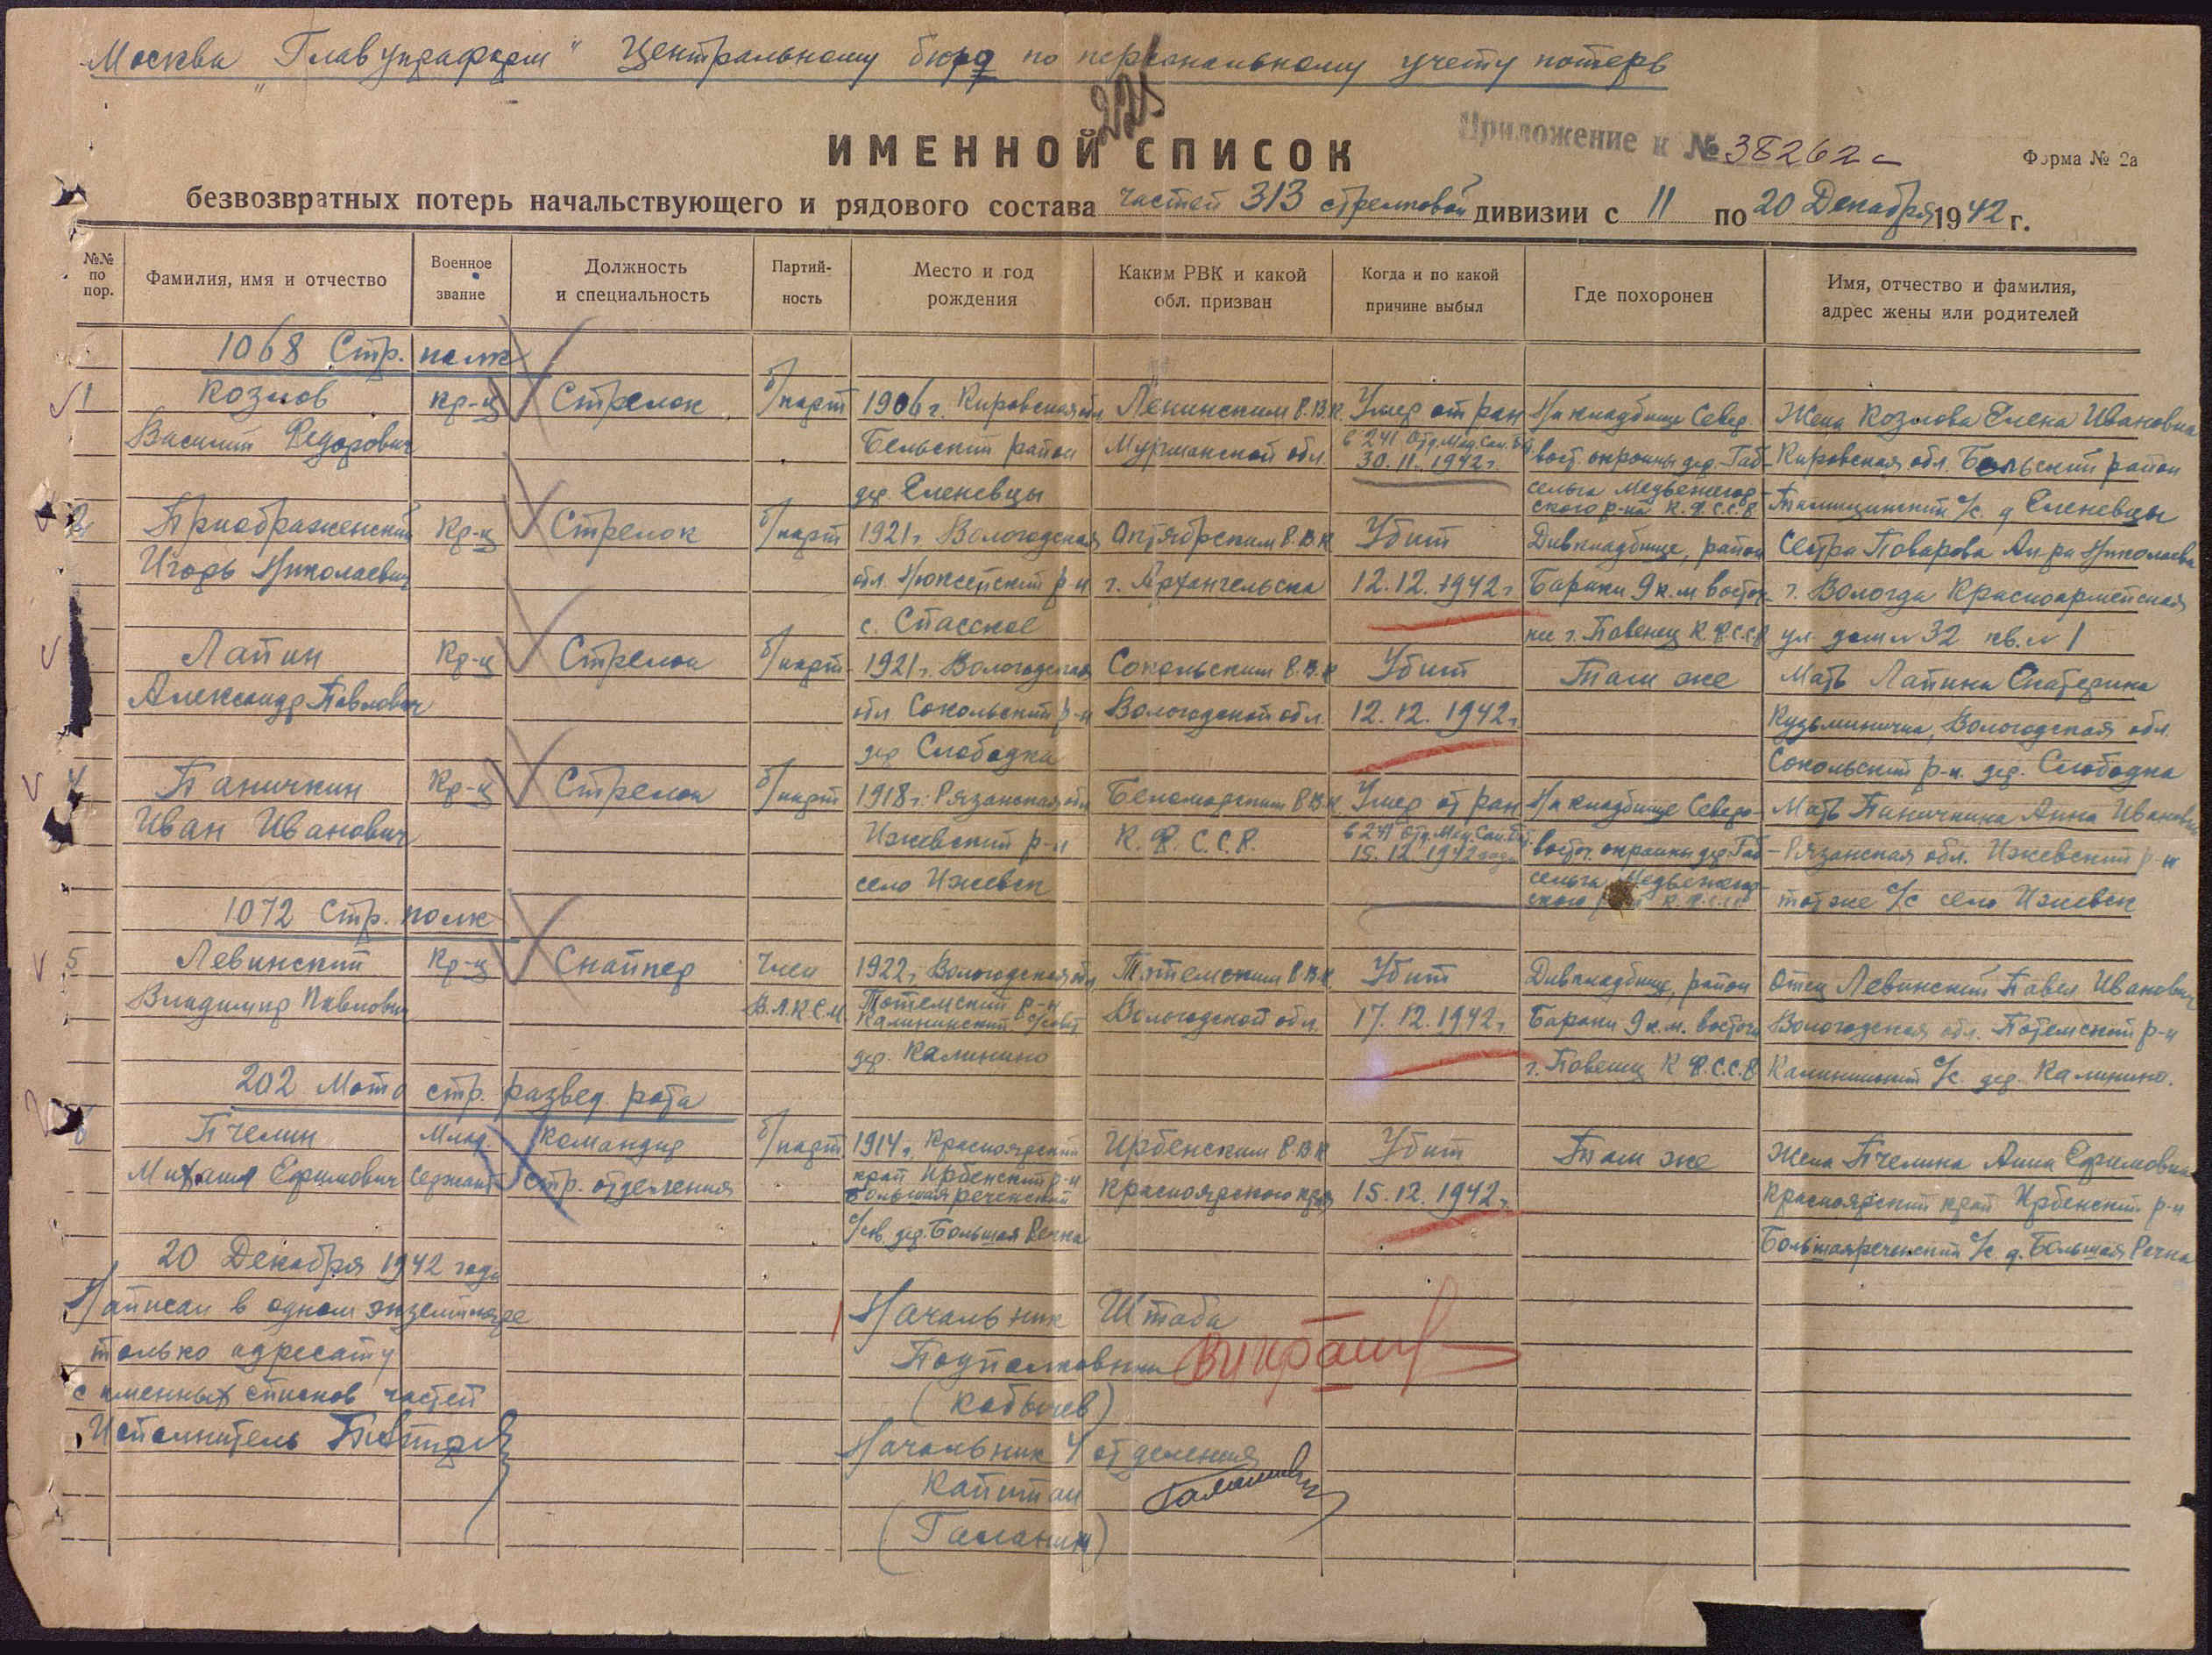 Москва "Главупраформ" Центральному бюро по персональному учету потерь
225
ИМЕННОЙ СПИСОК
Приложение к № 38262с
Форма № 2а
безвозвратных потерь начальствующего и рядового состава частей 313 стрелковой дивизии с 11 по 20 Декабря 1942 г.
№№ по пор.
Фамилия, имя и отчество
Военное звание
Должность и специальность
Партийность
Место и год рождения
Каким РВК и какой обл. призван
Когда и по какой причине выбыл
Где похоронен
Имя, отчество и фамилия, адрес жены или родителей
1068 Стр. полк
1 Козлов Кр-ц Стрелок б/парт 1906 г. Кировская обл Ленинским Р.В.К. Умер от ран На кладбище Север. Жена Козлова Елена Ивановна
Василий Федорович Бельский район Мурманской обл. в 241 Отд. Мед. Сан. Бат вост. окраины дер. Габ- Кировская обл. Бельский район
30.11.1942 г.
дер. Еленевцы сельга Медвежегор- ского р-на К.Ф.С.С.Р. с/с. д Еленевцы
2 Приображенский Кр-ц Стрелок б/парт 1921 г. Вологодская Октябрьским Р.В.К Убит Дивкладбище, район Сестра Поварова Ан-ра Николаевна
Игорь Николаевич обл. Нюксенский р-н г. Архангельска 12.12.1942 г Бараки 9 к.м восточ- г. Вологда Красноармейская
с. Спасское нее г. Повенец К.Ф.С.С.Р ул. дом № 32 кв. № 1
Лапин Кр-ц Стрелок б/парт 1921 г. Вологодская Сокольским Р.В.К Убит Там же Мать Лапина Екатерина
Александр Павлович обл. Сокольский р-н Вологодской обл. 12.12.1942 г Кузьминична, Вологодская обл.
дер Слободка Сокольский р-н. дер. Слободка
4 Паничкин Кр-ц Стрелок б/парт 1918 г. Рязанская обл Беломорским Р.В.К Умер от ран На кладбище Северо- Мать Паничкина Анна Ивановна
Иван Иванович Ижевский р-н К.Ф.С.С.Р. в 241 Отд. Мед. Сан. Бат. восточ. окраины дер. Габ- Рязанская обл. Ижевский р-н
15.12.1942 года
село Ижевск сельга Медвежегор- ского К.Ф.С.С.Р тот же с/с село Ижевск
1072 Стр. полк
5 Левинский Кр-ц Снайпер Член 1922 г. Вологодская обл Тотемским Р.В.К. Убит Дивкладбище, район Отец Левинский Павел Иванович
Владимир Павлович В.Л.К.С.М Тотемский р-н Калининский с/совт Вологодской обл. 17.12.1942 г. Бараки 9 к.м. восточн Вологодская обл. Тотемский р-н
дер. Калинино г. Повенец К.Ф.С.С.Р Калининский с/с дер. Калинино.
202 Мото стр. развед. рота
6 Пчелин Млад. Командир б/парт 1914 г. Красноярский Ирбенским Р.В.К Убит Там же Жена Пчелина Анна Ефимовна
Михаил Ефимович Сержант стр. отделения край Ирбенский р-н Большая реченский Красноярского края 15.12.1942 г. Красноярский край Ирбенский р-н
с/сов. дер. Большая Речка Большаяреченский с/с д. Большая Речка
20 Декабря 1942 года
Написан в одном экземпляре
только адресату
с именных списков частей
Исполнитель
Начальник Штаба
Подполковник
(Кобычев)
Начальник 4 отделения
Капитан
(Галанин)